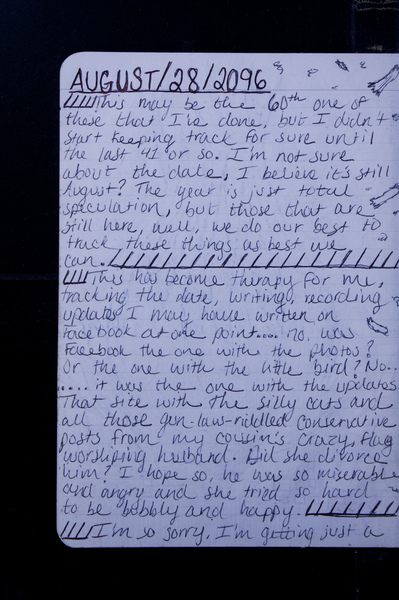 AUGUST/28/2096
This may be the 60th one of
these that I've done, but I didn't
start keeping track for sure until
the last 41 or so. I'm not sure
about the date, I believe it's still
August? The year is just total
speculation, but those that are
still here, well, we do our best to
track these things as best we
can.
This has become therapy for me,
tracking the date, writing, recording
updates I may have written on
Facebook at one point.... no, was
Facebook the one with the photos?
Or the one with the little bird? No..
.... it was the one with the updates
That site with the silly cats and
all those gun-law-riddled conservative
posts from my cousin's crazy, flag
worshiping husband. Did she divorce
him? I hope so, he was so miserable
and angry and she tried so hard
to be bubbly and happy.
I'm so sorry, I'm getting just a